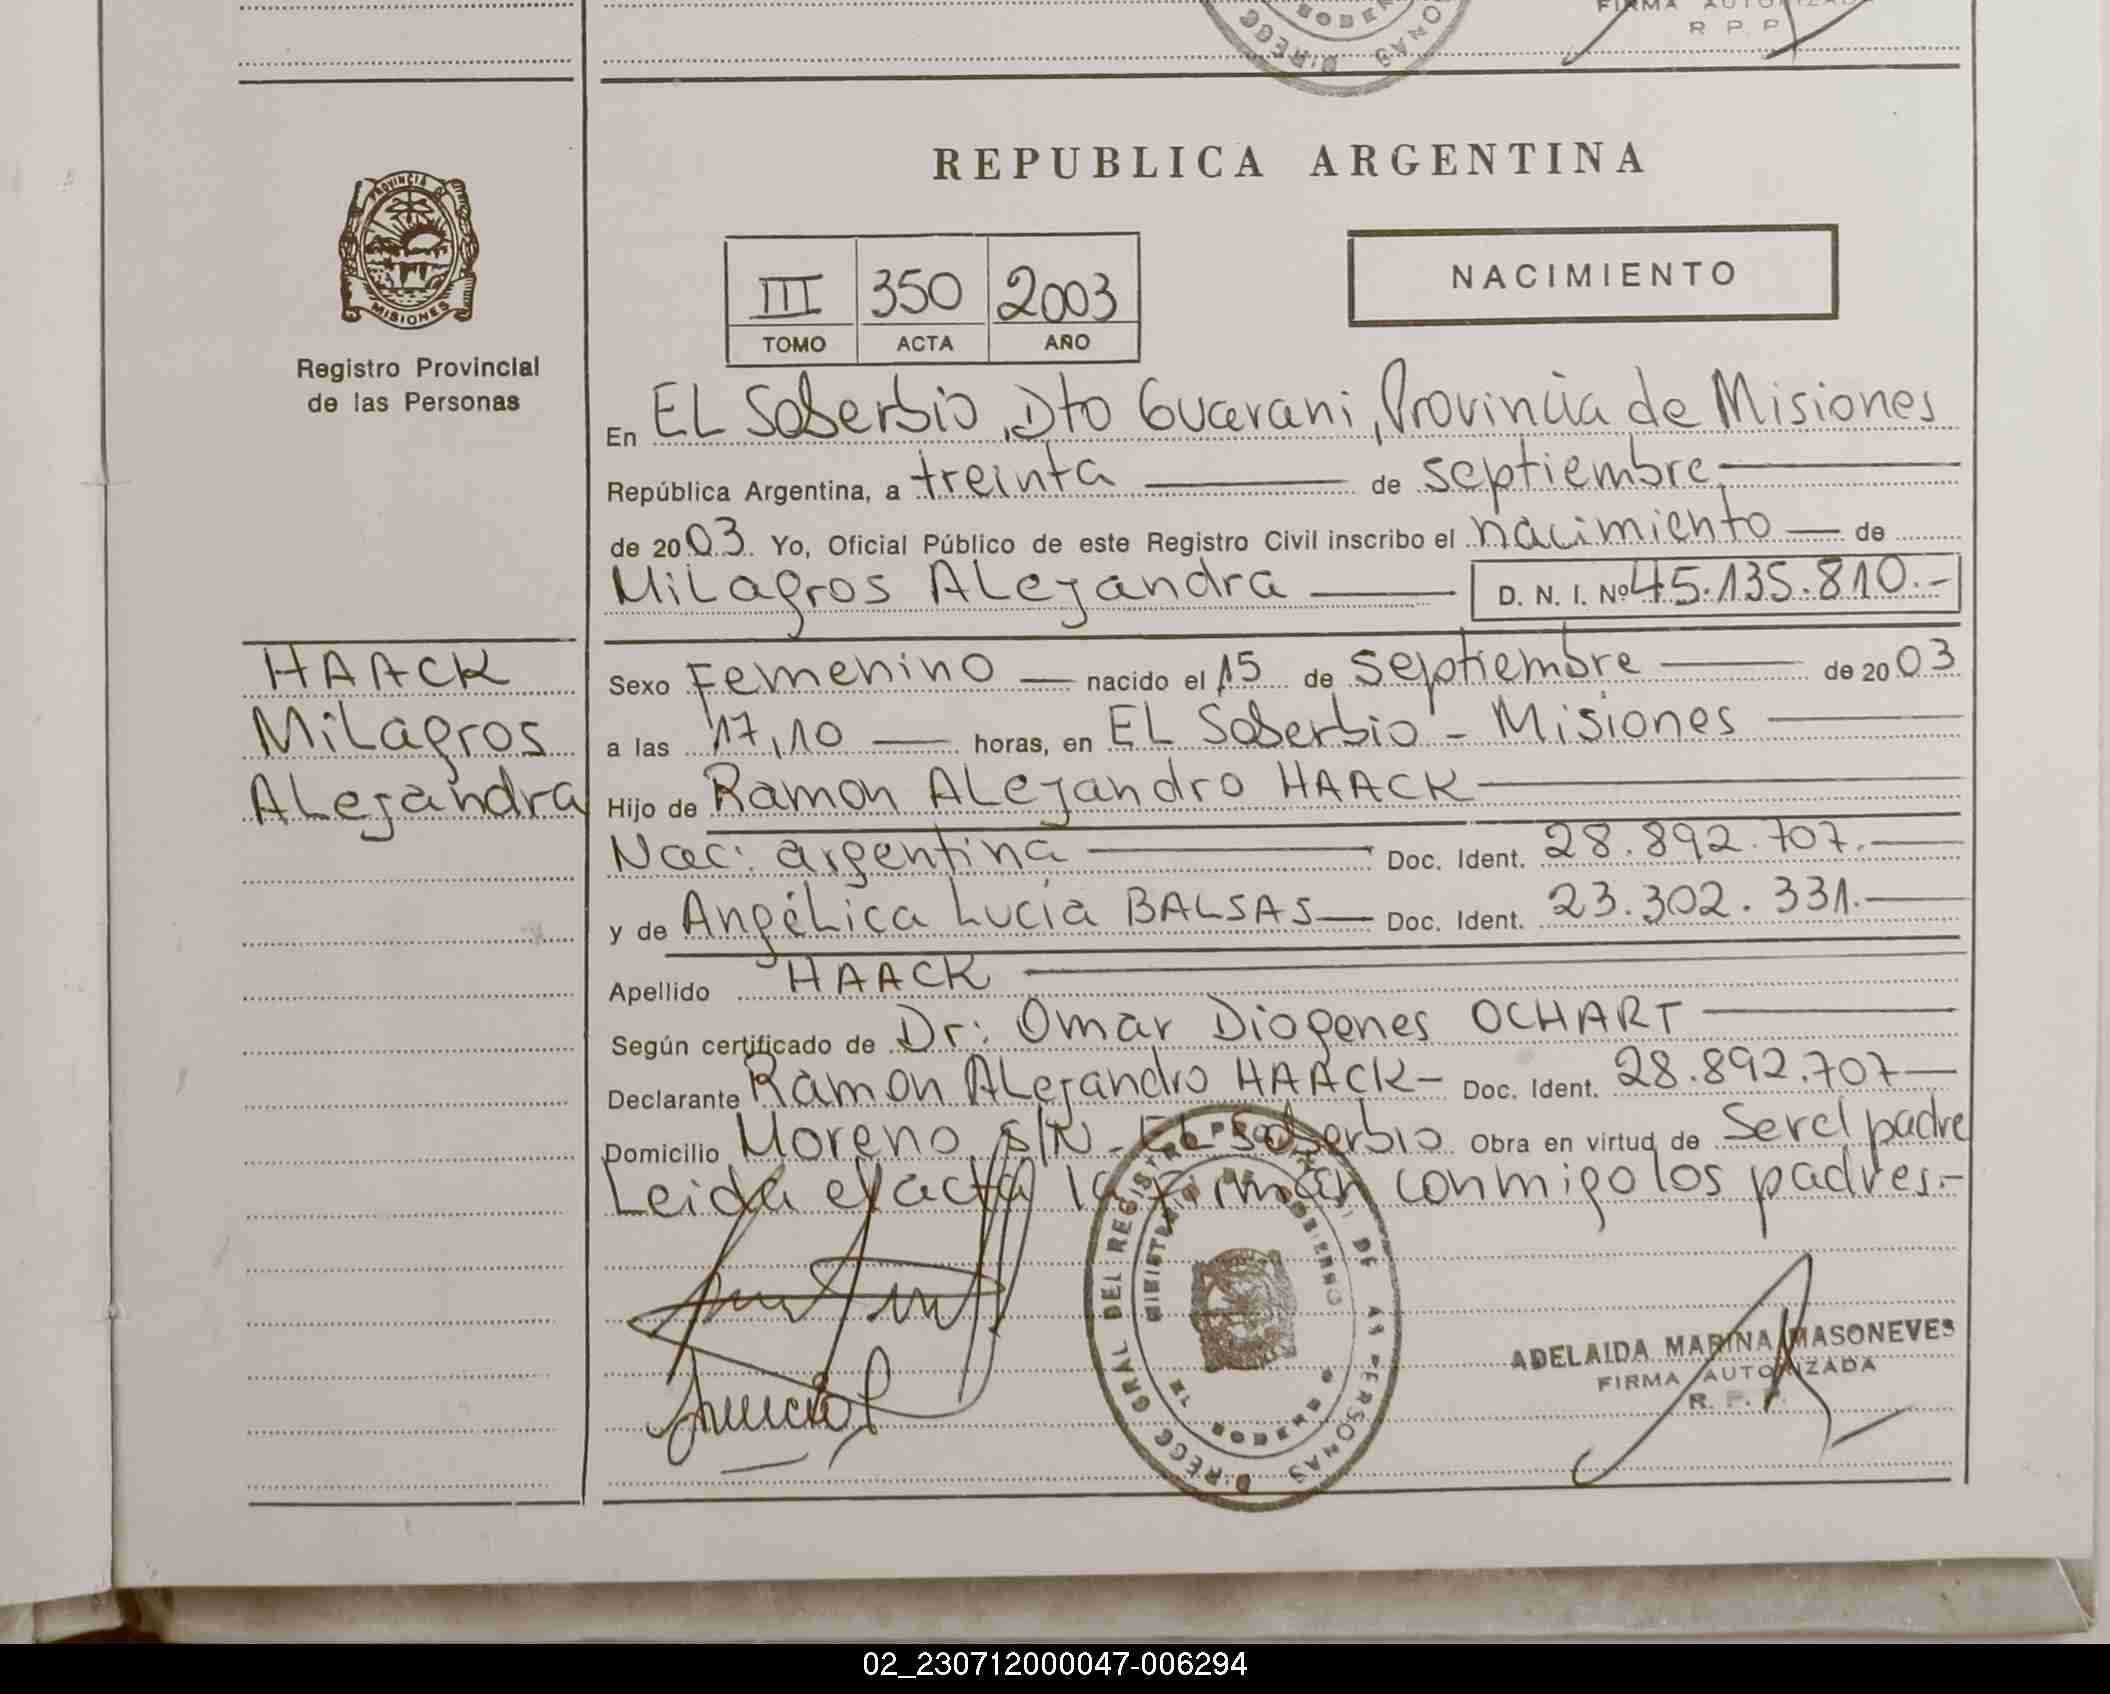 FIRMA AUTORIZADA
R. P. P.
REPUBLICA ARGENTINA
PROVINCIA DE MISIONES
Registro Provincial
de las Personas
III 350 2003
TOMO ACTA AÑO
NACIMIENTO
En EL Soberbio, Dto Guarani, Provincia de Misiones
República Argentina, a treinta de septiembre
de 2003. Yo, Oficial Público de este Registro Civil inscribo el nacimiento de
Milagros Alejandra D. N. I. Nº 45.135.810.-
HAACK
Milagros
Alejandra
Sexo Femenino nacido el 15 de septiembre de 2003
a las 17,10 horas, en EL Soberbio - Misiones
Hijo de Ramon Alejandro HAACK
Nac: argentina Doc. Ident. 28.892.707.
y de Angélica Lucía BALSAS Doc. Ident. 23.302.331.
Apellido HAACK
Según certificado de Dr: Omar Diogenes OCHART
Declarante Ramon Alejandro HAACK- Doc. Ident. 28.892.707
Domicilio Moreno S/N - EL Soberbio Obra en virtud de Ser el padre
Leida el acta la firman conmigo los padres.-
DIRECC GRAL DEL REGISTRO PROVINCIAL DE LAS PERSONAS
MINISTERIO DE GOBIERNO
ADELAIDA MARINA MASONEVES
FIRMA AUTORIZADA
R. P. P.
02_230712000047-006294